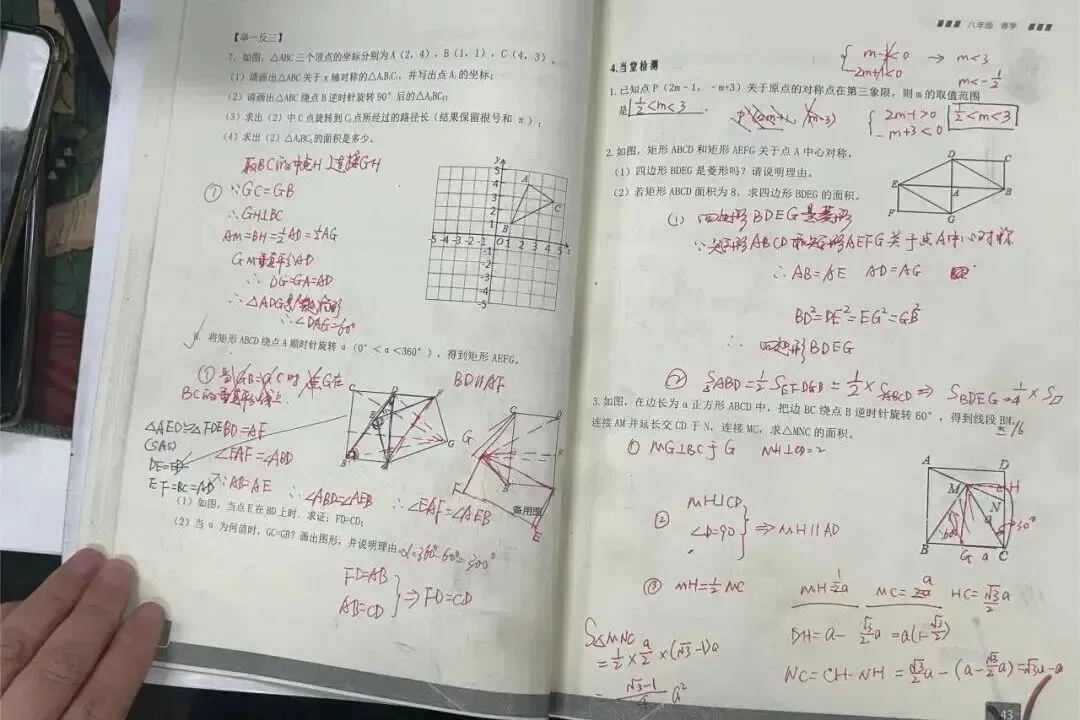 【举一反三】
7. 如图，△ABC三个顶点的坐标分别为A（2，4），B（1，1），C（4，3），
（1）请画出△ABC关于x轴对称的△A₁B₁C₁，并写出点A₁的坐标；
（2）请画出△ABC绕点B逆时针旋转90°后的△A₂BC₂；
（3）求出（2）中C点旋转到C₂点所经过的路径长（结果保留根号和π）；
（4）求出（2）△A₂BC₂的面积是多少。
取BC的中点H 连接GH
① ∵GC=GB
∴GH⊥BC
AM=BH=½AD=½AG
GM垂直平分AD
∴ DG=GA=AD
∴△ADG是
∴∠DAG=60°
y
5
4
3
2
1
A
C
B
-5 -4 -3 -2 -1 0 1 2 3 4 5 x
-1
-2
-3
-4
-5
将矩形ABCD绕点A顺时针旋转α（0°＜α＜360°），得到矩形AEFG。
① 当GB=GC时 G在
BC的垂直平分线上
BD∥AF
△AED≌△FDE BD=AF
(SAS)
∠EAF=∠ABD
DE=ED
EF=BC=AD ∵AB=AE
∴∠ABD=∠AEB
∴∠EAF=∠AEB
备用图
（1）如图，当点E在BD上时，求证：FD=CD；
（2）当α为何值时，GC=GB？画出图形，并说明理由。
α=360°-60°=300°
FD=AB
AB=CD
⇒FD=CD
八年级 春季
4. 当堂检测
m-3<0 → m<3
2m+1<0
m<-½
1. 已知点P（2m-1，-m+3）关于原点的对称点在第三象限，则m的取值范围
是 ½<m<3
2m-1>0
-m+3<0
½<m<3
2. 如图，矩形ABCD和矩形AEFG关于点A中心对称，
（1）四边形BDEG是菱形吗？请说明理由。
（2）若矩形ABCD面积为8，求四边形BDEG的面积。
D C
E A B
F G
(1) 四边形BDEG是菱形
∵矩形ABCD和矩形AEFG关于点A中心对称
∴AB=AE AD=AG
BD²=DE²=EG²=GB²
∴ 四边形BDEG
② S_ABD=½S_EFDGB=½×S_ABCD ⇒ S_BDEG=4×S
=16
3. 如图，在边长为a正方形ABCD中，把边BC绕点B逆时针旋转60°，得到线段BM，
连接AM并延长交CD于N，连接MC，求△MNC的面积。
① MG⊥BC于G MH⊥CD=2
② MH⊥CD
∠D=90
⇒MH∥AD
A D
M H
N
60° 30°
B G a C
③ MH=½MC
MH=½a MC=a HC=√3/2 a
DH=a-√3/2 a=a(1-√3/2)
S△MNC
=½×a/2×(√3-1)a
=(√3-1)/4 a²
NC=CH-NH=√3/2 a-(a-√3/2 a)=√3a-a
43